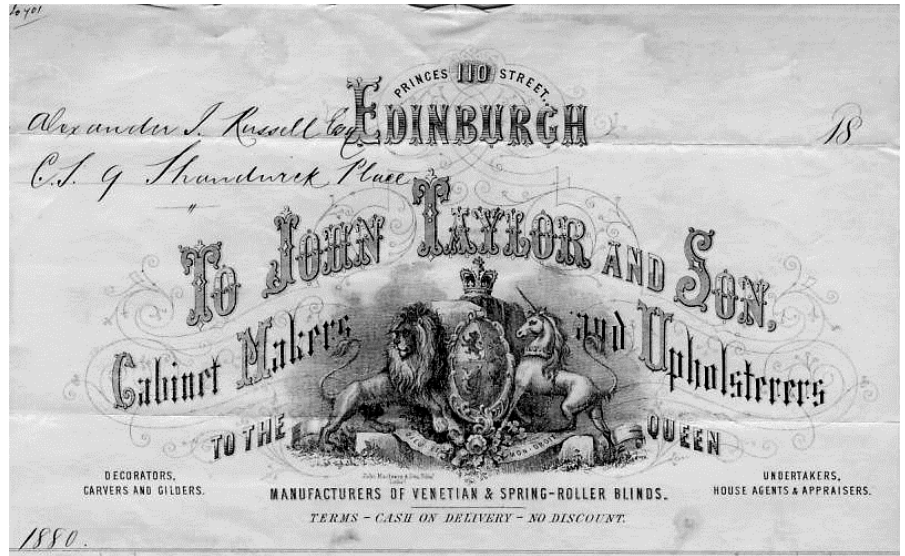 PRINCES 110 STREET.
EDINBURGH
Alexander J. Russell Esq
18
C.S. 9 Shandwick Place
"
TO JOHN TAYLOR AND SON,
Cabinet Makers and Upholsterers
TO THE QUEEN
DIEU ET MON DROIT
DECORATORS,
CARVERS AND GILDERS.
UNDERTAKERS,
HOUSE AGENTS & APPRAISERS.
MANUFACTURERS OF VENETIAN & SPRING-ROLLER BLINDS.
TERMS – CASH ON DELIVERY – NO DISCOUNT.
1880.